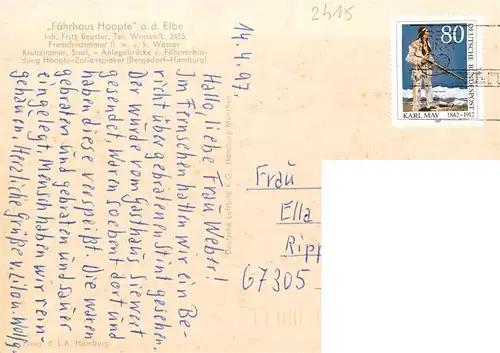 „Fährhaus Hoopte" a. d. Elbe
Inh. Fritz Beuster, Tel. Winsen/L. 2415
Fremdenzimmer fl. w. u. k. Wasser
Klubzimmer, Saal, - Anlegebrücke u. Fährverbin-
dung Hoopte-Zollenspieker (Bergedorf-Hamburg)
2415
14.4.97,
Hallo, liebe Frau Weber!
Im Fernsehen hatten wir ein Be-
richt über gebratenen Stint gesehen.
Der wurde vom Gasthaus Siewert
gesendet. Waren soebent dort und
haben diese verspeißt. Die waren
gebraten und gebraten und sauer
eingelegt. Mensch haben wir rein-
gehauen. Herzliche Grüße v. Lilo u. Wolfg.
Deutsche Luftbild K. G., Hamburg
Freig. d. L.A. Hamburg
80
DEUTSCHE BUNDESPOST
KARL MAY 1842-1912
Frau
Ella
Ripp
67305